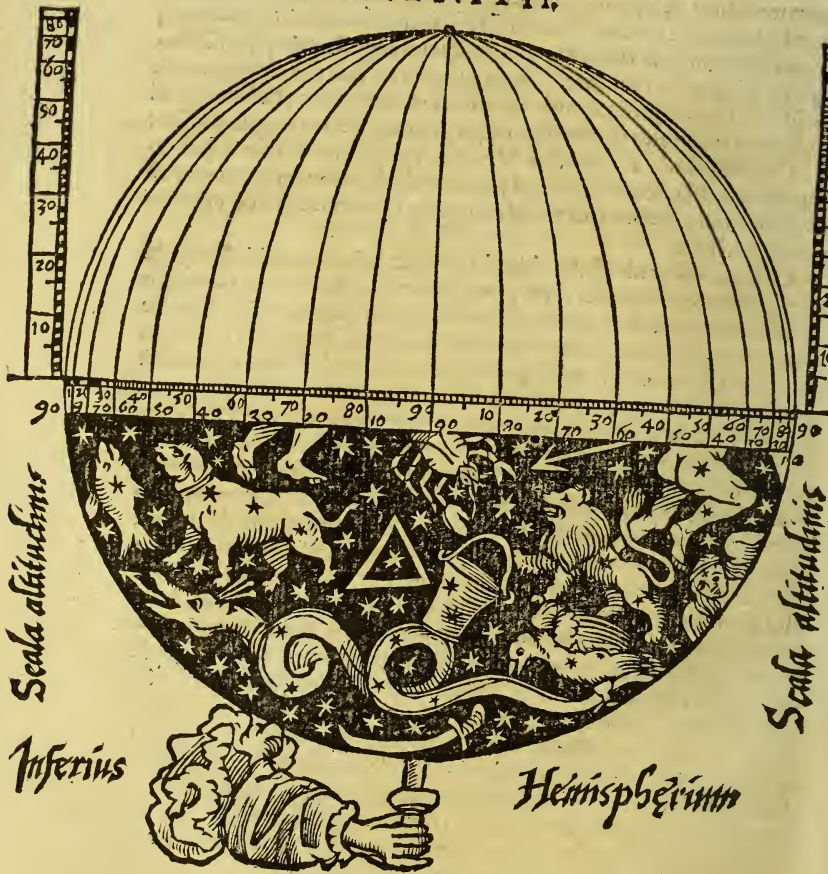 80
70
60
50
40
30
20
10
90 10 20 30 40 50 60 70 80 90 10 20 30 40 50 60 70 80 90
70 60 50 40 30 20 10 90 10 20 70 60 50 40 30 20 10
Scala altitudinis
Scala altitudinis
Inferius
Hemisphęrium